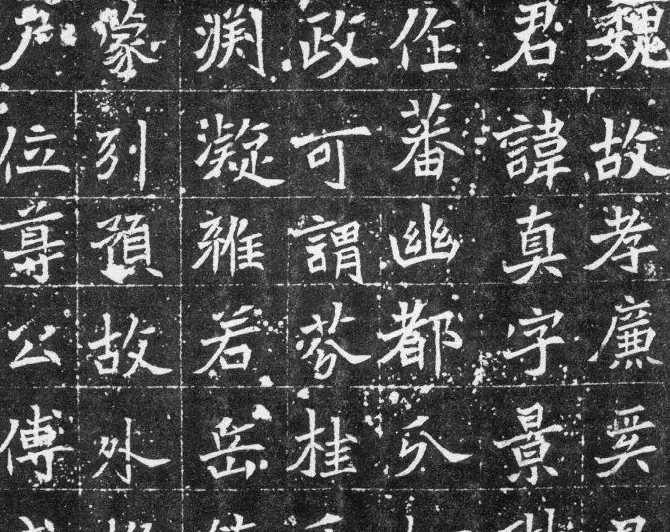 魏故孝廉奚
君諱真字景
作蕃幽都
政可謂芬桂
渊凝雅若岳
蒙引預故外
位尊公傅